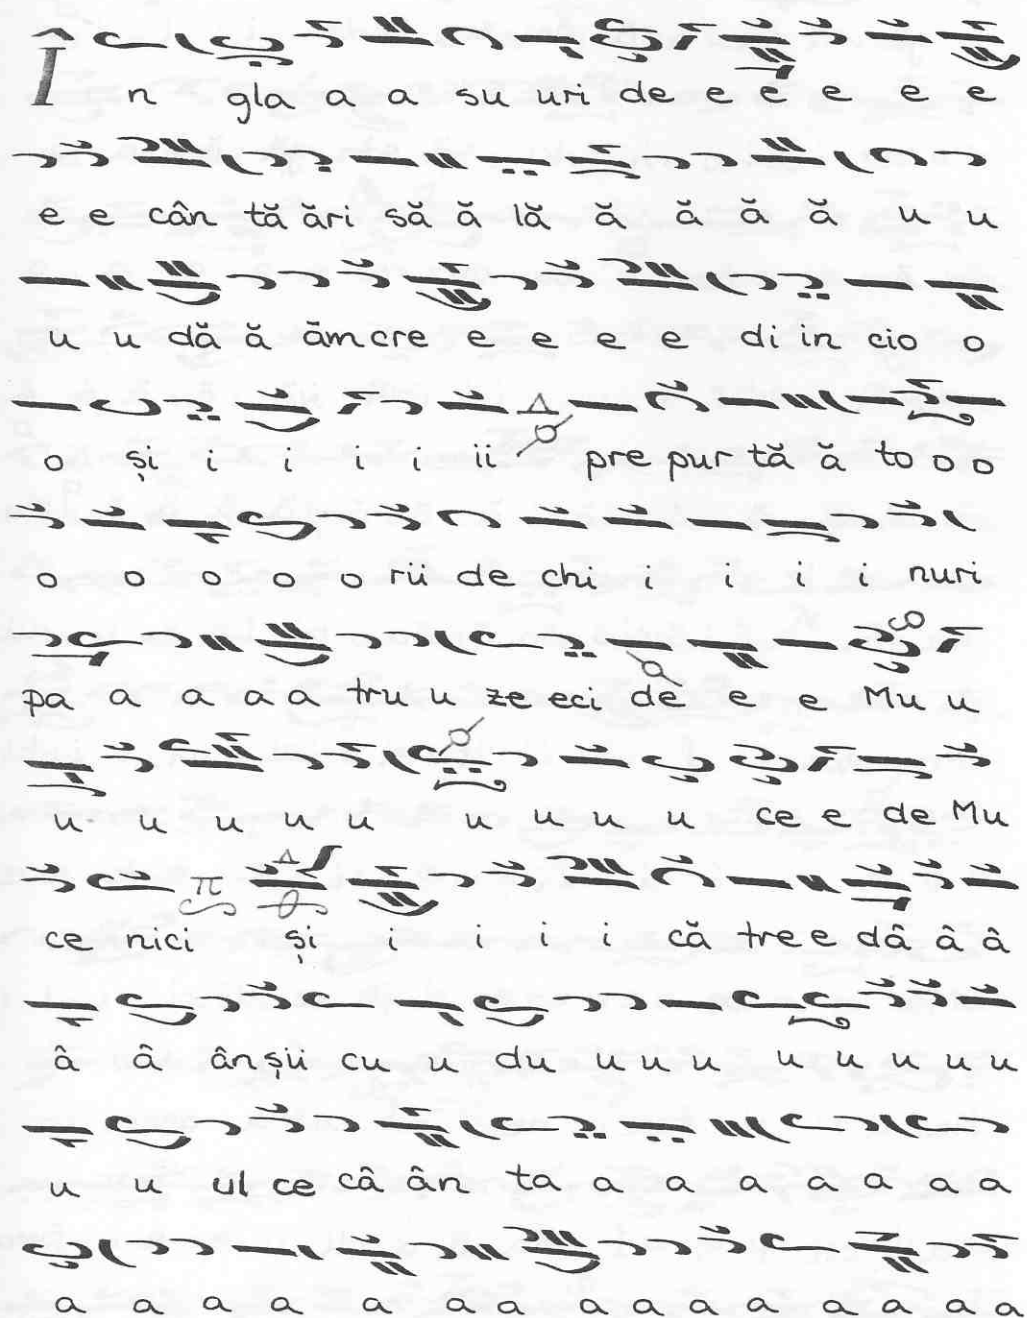 În gla a a su uri de e e e e e
e e cân tă ări să ă lă ă ă ă ă u u
u u dă ă ăm cre e e e e di in cio o
o și i i i i ii pre pur tă ă to o o
o o o o o rii de chi i i i i nuri
pa a a a a tru u ze eci de e e Mu u
u u u u u u u u u ce e de Mu
ce nici și i i i i că tre e dâ â â
â â ânșii cu u du u u u u u u u u
u u ul ce câ ân ta a a a a a a a
a a a a a a a a a a a a a a a